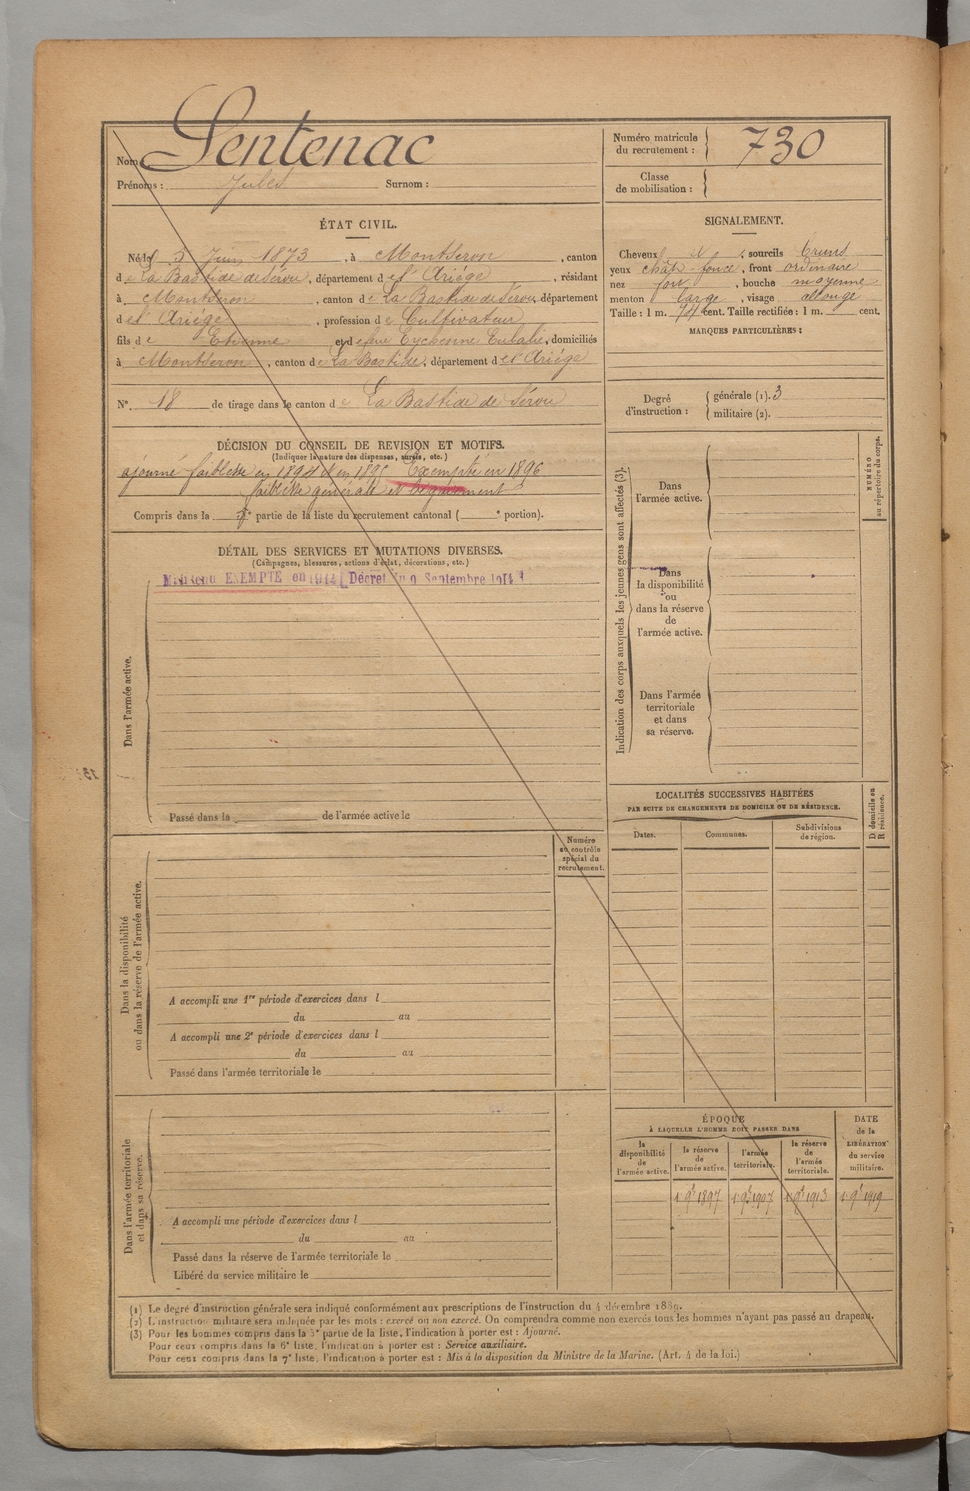 Nom : Sentenac
Prénoms : Jules Surnom :
Numéro matricule du recrutement : 730
Classe de mobilisation :
ÉTAT CIVIL.
Né le 5 Juin 1873, à Montseron, canton
de La Bastide de Sérou, département de l'Ariège, résidant
à Montseron, canton de La Bastide de Sérou, département
de l'Ariège, profession de Cultivateur
fils de Etienne et de feue Eychenne Eulalie, domiciliés
à Montseron, canton de La Bastide, département de l'Ariège
N° 18 de tirage dans le canton de La Bastide de Sérou
DÉCISION DU CONSEIL DE REVISION ET MOTIFS.
(Indiquer la nature des dispenses, sursis, etc.)
ajourné faiblesse en 1894 et en 1895 Exempté en 1896
faiblesse générale et
Compris dans la partie de la liste du recrutement cantonal ( e portion).
DÉTAIL DES SERVICES ET MUTATIONS DIVERSES.
(Campagnes, blessures, actions d'éclat, décorations, etc.)
Maintenu EXEMPTÉ en 1914 [Décret du 9 Septembre 1914]
Dans l'armée active.
Passé dans la de l'armée active le
Numéro au contrôle spécial du recrutement.
Dans la disponibilité
ou dans la réserve de l'armée active.
A accompli une 1re période d'exercices dans l
du au
A accompli une 2e période d'exercices dans l
du au
Passé dans l'armée territoriale le
Dans l'armée territoriale
et dans sa réserve.
A accompli une période d'exercices dans l
du au
Passé dans la réserve de l'armée territoriale le
Libéré du service militaire le
SIGNALEMENT.
Cheveux et, sourcils bruns
yeux chât. foncé, front ordinaire
nez fort, bouche moyenne
menton large, visage allongé
Taille : 1 m. 74 cent. Taille rectifiée : 1 m. cent.
MARQUES PARTICULIÈRES :
Degré d'instruction :
générale (1). 3
militaire (2).
Indication des corps auxquels les jeunes gens sont affectés (3).
NUMÉRO au répertoire du corps.
Dans
l'armée active.
Dans
la disponibilité
ou
dans la réserve
de
l'armée active.
Dans l'armée
territoriale
et dans
sa réserve.
LOCALITÉS SUCCESSIVES HABITÉES
PAR SUITE DE CHANGEMENTS DE DOMICILE OU DE RÉSIDENCE.
D domicile ou
R résidence.
Dates. Communes. Subdivisions de région.
ÉPOQUE
À LAQUELLE L'HOMME DOIT PASSER DANS
DATE de la LIBÉRATION du service militaire.
la disponibilité de l'armée active.
la réserve de l'armée active.
l'armée territoriale.
la réserve de l'armée territoriale.
1 9bre 1897 1 9bre 1907 1 9bre 1913 1 9bre 1919
(1) Le degré d'instruction générale sera indiqué conformément aux prescriptions de l'instruction du 4 décembre 1889.
(2) L'instruction militaire sera indiquée par les mots : exercé ou non exercé. On comprendra comme non exercés tous les hommes n'ayant pas passé au drapeau.
(3) Pour les hommes compris dans la 5e partie de la liste, l'indication à porter est : Ajourné.
Pour ceux compris dans la 6e liste, l'indication à porter est : Service auxiliaire.
Pour ceux compris dans la 7e liste, l'indication à porter est : Mis à la disposition du Ministre de la Marine. (Art. 4 de la loi.)